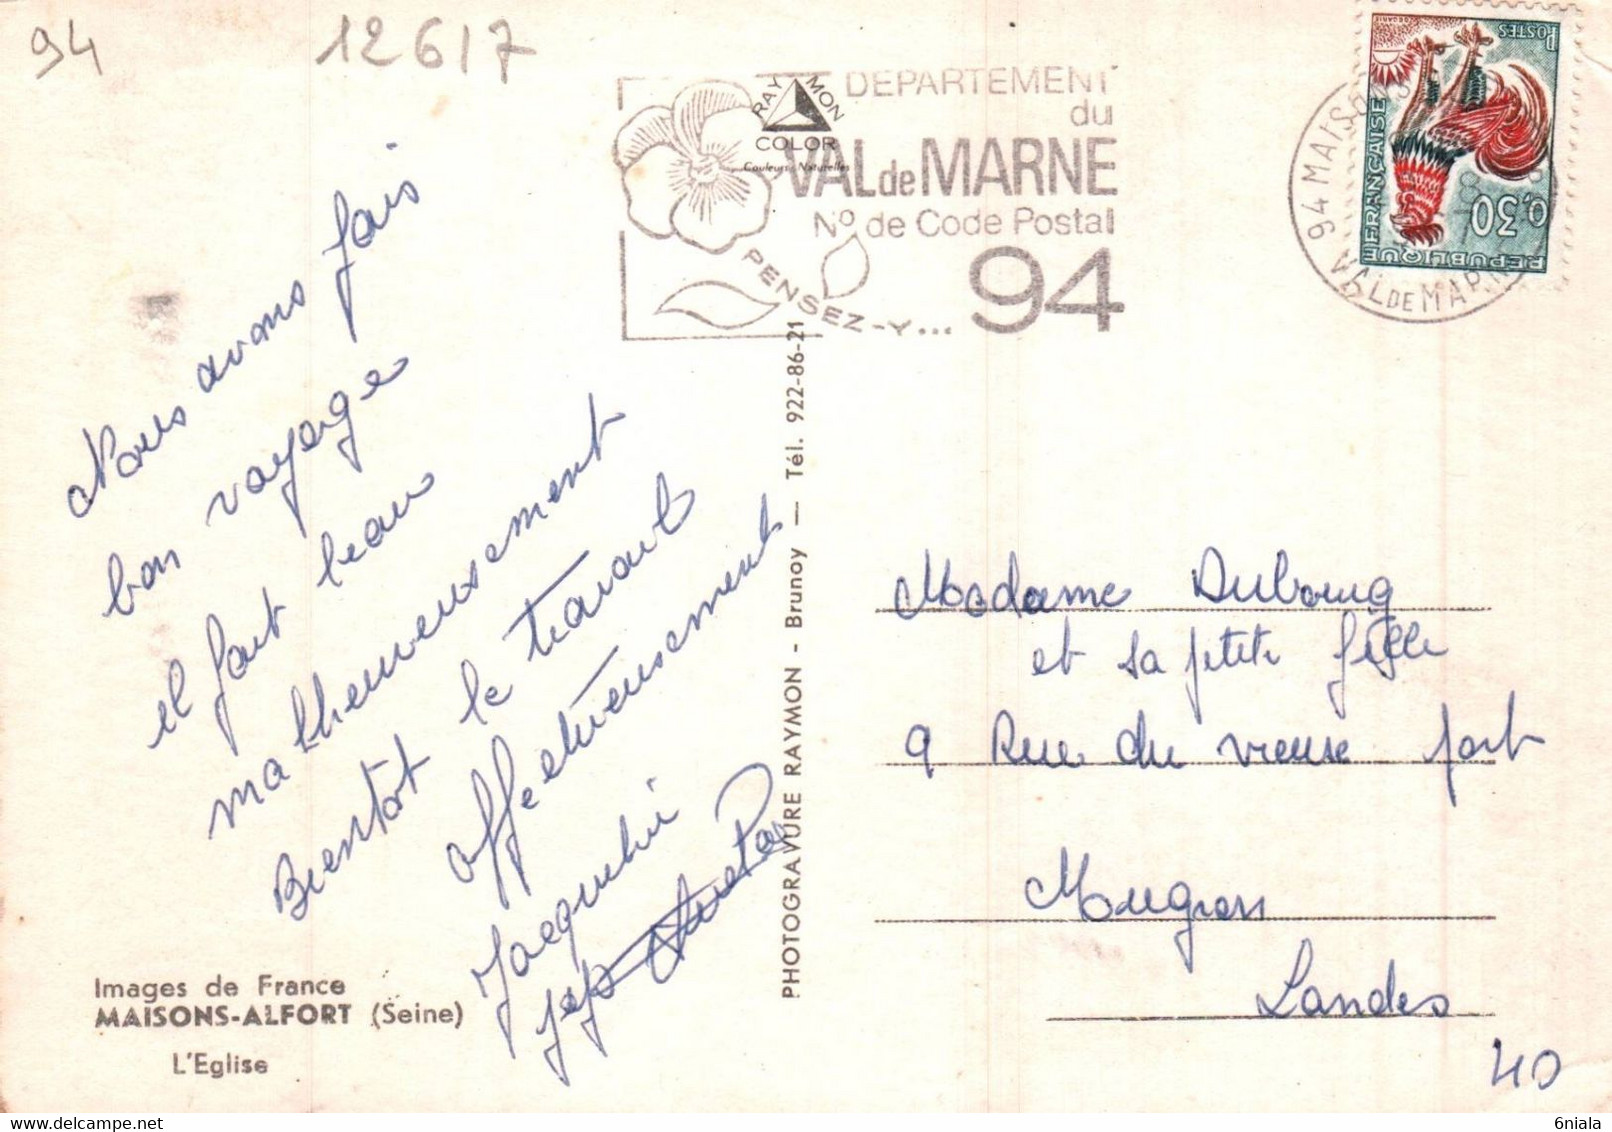 94
12617
RAYMON
COLOR
Couleurs Naturelles
DEPARTEMENT
du
VAL de MARNE
N° de Code Postal
94
PENSEZ-Y...
POSTES
REPUBLIQUE FRANÇAISE
0,30
94 MAISONS
VAL DE MARNE
Nous avons fais
bon voyage
il fait beau
malheureusement
Bientot le travail
affectueusement
Jacqueline
PHOTOGRAVURE RAYMON - Brunoy — Tél. 922-86-21
Madame Dubourg
et sa petite fille
9 Rue du vieux port
Mugron
Landes
40
Images de France
MAISONS-ALFORT (Seine)
L'Eglise
6niala